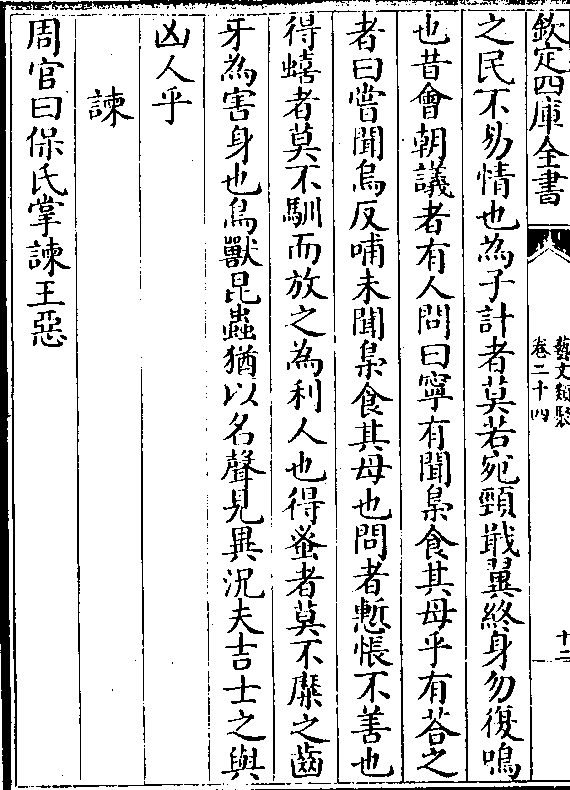 欽定四庫全書
藝文類聚
卷二十四
十二
之民不易情也為子計者莫若宛頸戢翼終身勿復鳴
也昔會朝議者有人問曰寧有聞梟食其母乎有荅之
者曰嘗聞烏反哺未聞梟食其母也問者慙悵不善也
得蟢者莫不馴而放之為利人也得蚤者莫不糜之齒
牙為害身也鳥獸昆蟲猶以名聲見異況夫吉士之與
凶人乎
諫
周官曰保氏掌諫王惡